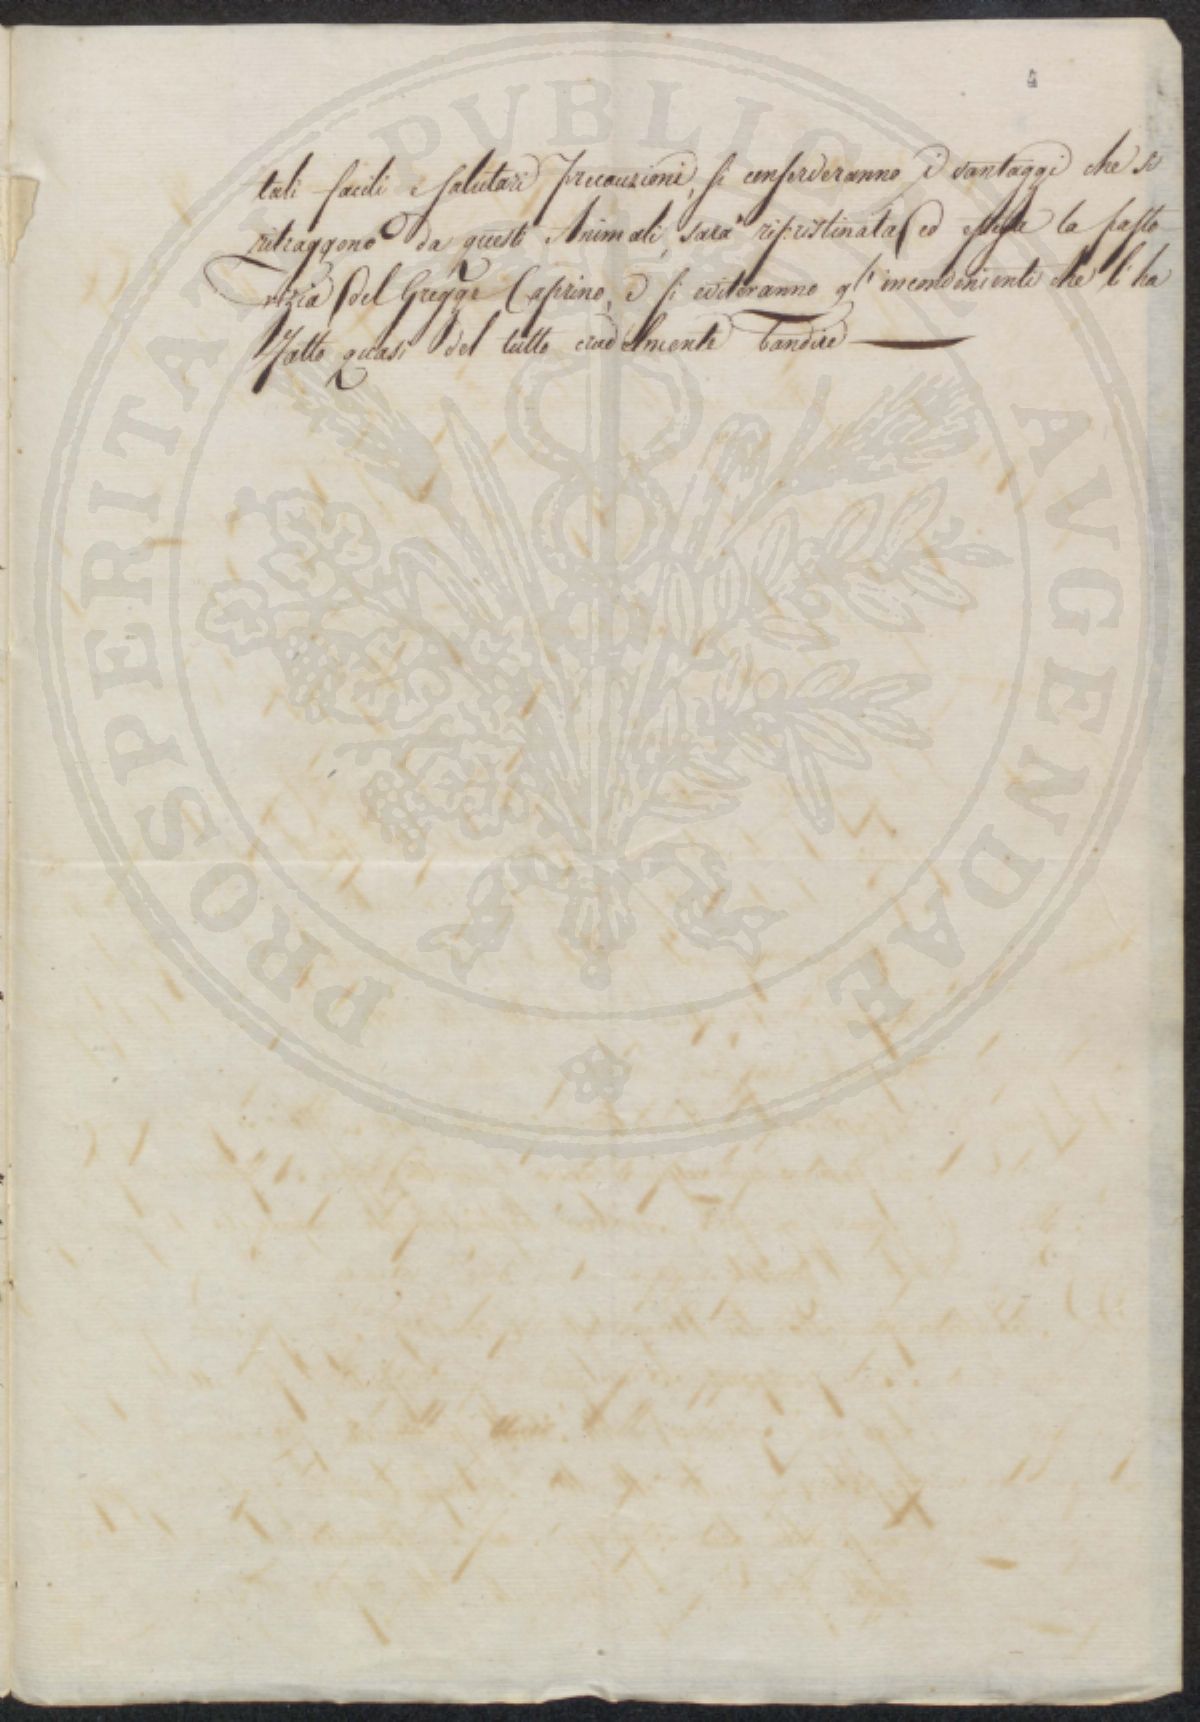 4
tali facili e salutari precauzioni, si conserveranno i vantaggi che si
ritraggono da questi Animali, sarà ripristinata ed estesa la pasto-
rizia del Gregge Caprino, e si eviteranno gl'inconvenienti che l'ha
fatto quasi del tutto crudelmente bandire
PROSPERITATI PVBLICAE AVGENDAE